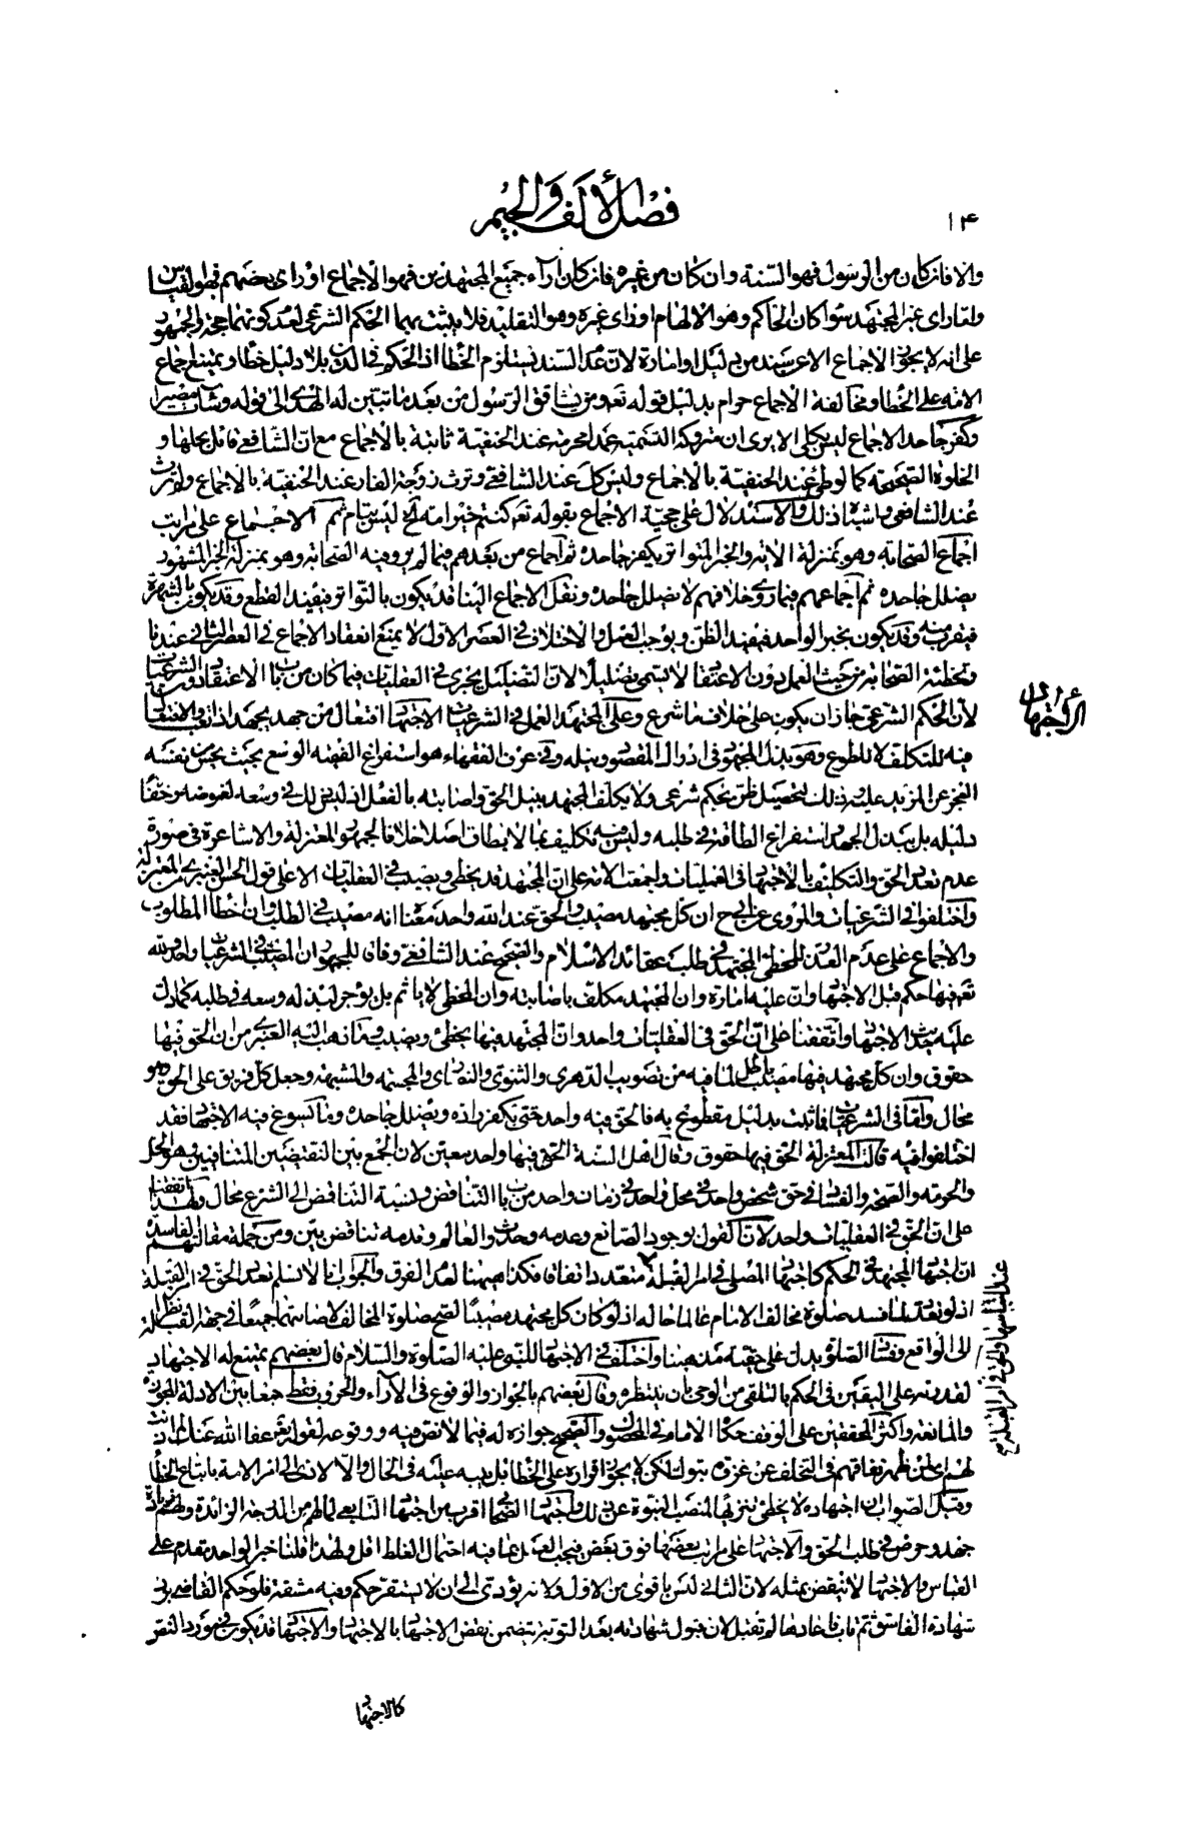 ١٤
فصل الألف والجيم
والا فان كان من الرسول فهو السنة وان كان من غيره فان كان آراء جميع المجتهدين فهو الاجماع او رأى بعضهم فهو القياس
واما رأى غير المجتهد سواء كان الحاكم وهو الالهام او رأى غيره وهو التقليد فلا يثبت بهما الحكم الشرعي لعدم كونهما حجة والجمهور
على انه لا يجوز الاجماع الا عن سند من دليل او امارة لان عدم السند يستلزم الخطأ اذ الحكم في الدين بلا دليل خطأ ويمتنع اجماع
الامة على الخطأ ومخالفة الاجماع حرام بدليل قوله تعالى ومن يشاقق الرسول من بعد ما تبين له الهدى الى قوله وساءت مصيرا
وكفر جاحد الاجماع ليس بكلي الا يرى ان متروك التسمية عمدا محرمة عند الحنفية ثابتة بالاجماع مع ان الشافعي قائل بحلها و
الخلوة الصحيحة كالوطئ عند الحنفية بالاجماع وليس كل عند الشافعي وترث زوجة الفار عند الحنفية بالاجماع ولا ترث
عند الشافعي واشباه ذلك والاستدلال على حجية الاجماع بقوله تعالى كنتم خير امة الخ ليس بتام ثم الاجماع على مراتب
اجماع الصحابة وهو بمنزلة الآية والخبر المتواتر يكفر جاحده ثم اجماع من بعدهم فيما لم يرو فيه الصحابة وهو بمنزلة الخبر المشهور
يضلل جاحده ثم اجماعهم فيما روى خلافهم لا يضلل جاحده ونقل الاجماع الينا قد يكون بالتواتر فيفيد القطع وقد يكون بالشهرة
فيقرب منه وقد يكون بخبر الواحد فيفيد الظن ويوجب العمل والاختلاف في العصر الاول لا يمنع انعقاد الاجماع في العصر الثاني عندنا
وتخطئة الصحابة من حيث العمل دون الاعتقاد لا يسمى تضليلا لان التضليل يجرى في العقليات فيما كان من باب الاعتقاد دون الشرعيات
لأن الحكم الشرعي جاز ان يكون على خلاف ما شرع وعلى المجتهد العمل في الشرعيات الاجتهاد افتعال من جهد يجهد اذا تعب والافتعال
فيه للتكلف لا للطوع وهو بذل المجهود في ادراك المقصود ونيله وفي عرف الفقهاء هو استفراغ الفقيه الوسع بحيث يحس من نفسه
العجز عن المزيد عليه وذلك لتحصيل ظن بحكم شرعي ولا يكلف المجتهد بنيل الحق واصابته بالفعل اذ ليس ذلك في وسعه لغموضه وخفاء
دليله بل ببذل الجهد واستفراغ الطاقة في طلبه وليس فيه تكليف بما لا يطاق اصلا خلافا لجمهور المعتزلة والاشاعرة في صورة
عدم تعدد الحق والتكليف بالاجتهاد في العمليات واجمعت الامة على ان المجتهد قد يخطئ ويصيب في العقليات الا على قول الحسن العنبري من المعتزلة
واختلفوا في الشرعيات والمروى عن ابي ح ان كل مجتهد مصيب والحق عند الله واحد معناه انه مصيب في الطلب وان اخطأ المطلوب
والاجماع على عدم العذر للمخطئ المجتهد في طلب عقائد الاسلام والصحيح عند الشافعي وفاقا للجمهور ان المصيب في الشرعيات واحد ولله
تعالى فيها حكم قبل الاجتهاد وان عليه امارة وان المجتهد مكلف باصابته وان المخطئ لا ياثم بل يؤجر لبذله وسعه في طلبه كما دل
عليه حديث الاجتهاد واتفقنا على ان الحق في العقليات واحد وان المجتهد فيها يخطئ ويصيب وما ذهب اليه العنبري من ان الحق فيها
حقوق وان كل مجتهد فيها مصيب باطل لما فيه من تصويب الدهرى والثنوى والنصارى والمجسمة والمشبهة وجعل كل فريق على الحق وهو
محال واما في الشرعيات فما ثبت بدليل مقطوع به فالحق فيه واحد حتى يكفر راده ويضلل جاحده وما يسوغ فيه الاجتهاد فقد
اختلفوا فيه قالت المعتزلة الحق فيها حقوق وقال اهل السنة الحق فيها واحد معين لان الجمع بين النقيضين المتنافيين وهو الحل
والحرمة والصحة والفساد في حق شخص واحد في محل واحد في زمان واحد من باب التناقض ونسبة التناقض الى الشرع محال ولهذا اتفقنا
على ان الحق في العقليات واحد لان القول بوجود الصانع وعدمه وحدوث العالم وقدمه تناقض بين ومن جملة مقالتهم الفاسدة
ان اجتهاد المجتهد في الحكم كاجتهاد المصلي في امر القبلة متعدد اتفاقا فكذا ههنا لعدم الفرق والجواب انا لا نسلم تعدد الحق في امر القبلة
اذ لو تعدد لما فسد صلوة مخالف الامام عالما حاله اذ لو كان كل مجتهد مصيبا لصح صلوة المخالف لاصابتهما جميعا في جهة القبلة نظرا
الى الواقع وفساد الصلوة يدل على حقية مذهبنا واختلف في الاجتهاد للنبي عليه الصلوة والسلام قال بعضهم يمتنع له الاجتهاد
لقدرته على اليقين في الحكم بالتلقى من الوحي بان ينتظره وقال بعضهم بالجواز والوقوع في الآراء والحروب فقط جمعا بين الادلة المجوزة
والمانعة واكثر المحققين على الوقف حكاه الامام في المحصول والصحيح جوازه له فيما لا نص فيه ووقوعه لقوله تعالى عفا الله عنك لم اذنت
لهم اى لمن ظهر نفاقهم في التخلف عن غزوة تبوك لكن لا يجوز اقراره على الخطأ بل ينبه عليه في الحال والا لادى الى امر الامة باتباع الخطأ
وقيل الصواب ان اجتهاده لا يخطئ تنزيها لمنصب النبوة عن ذلك واجتهاد الصحابي اقرب من اجتهاد التابعي لما لهم من الدرجة الزائدة ولهم زيادة
جهد وحرص في طلب الحق والاجتهاد على مراتب بعضها فوق بعض فيجب العمل بما فيه احتمال الغلط اقل ولهذا قلنا خبر الواحد مقدم على
القياس والاجتهاد لا ينقض بمثله لان الثاني ليس باقوى من الاول ولانه يؤدى الى ان لا يستقر حكم وفيه مشقة فلو حكم القاضي برد
شهادة الفاسق ثم تاب فاعادها لم تقبل لان قبول شهادته بعد التوبة يتضمن نقض الاجتهاد بالاجتهاد والاجتهاد قد يكون في مورد النص
كالاجتهاد
الاجتهاد